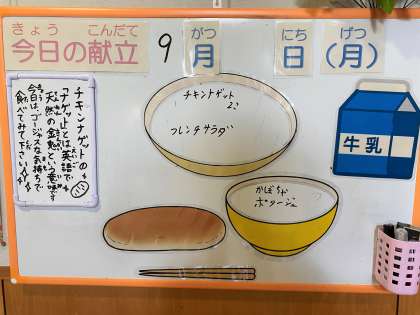 きょう こんだて がつ にち げつ
今日の献立 9月 日(月)
チキンナゲットの
「ナゲット」とは英語で、
天然の金塊という意味です
今日は、ゴージャスなお気持ちで
食べてみて下さい
チキンナゲット
2コ
フレンチサラダ
牛乳
かぼちゃ
ポタージュ